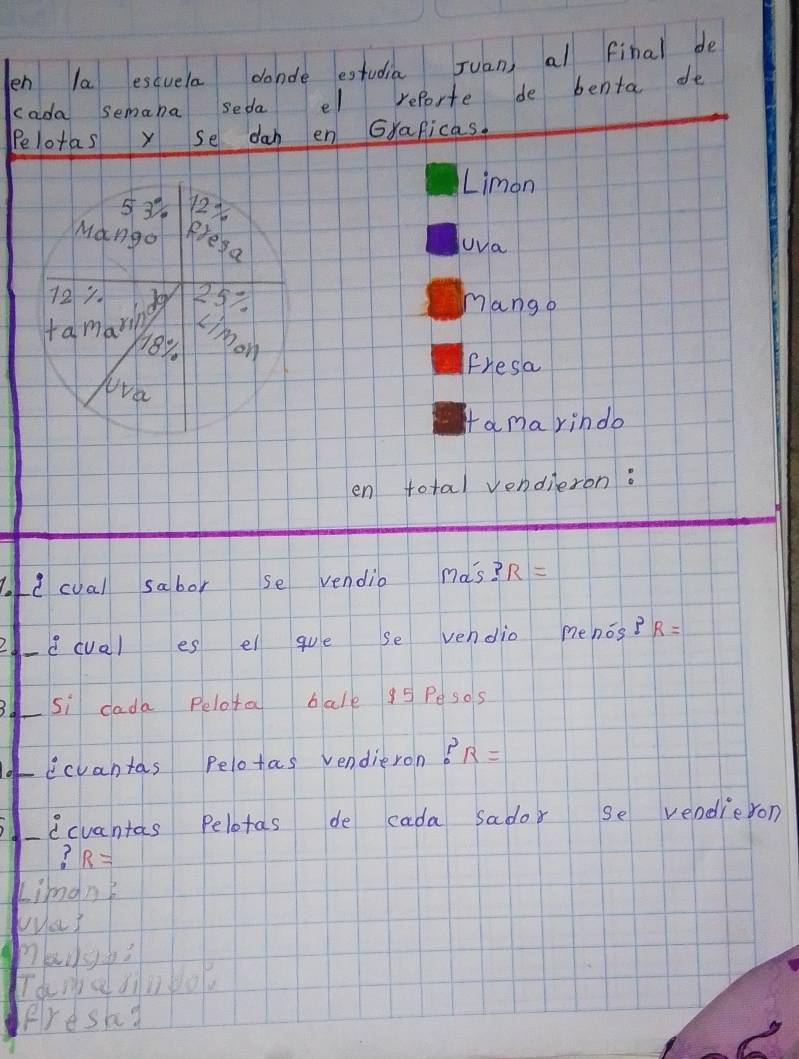 en la escuela donde estudia Juan, al final de
cada semana seda el reporte de benta de
Pelotas y se dan en Graficas.
53% Mango
12% fresa
12% tamarindo
18% uva
25% Limon
Limon
uva
mango
fresa
tamarindo
en total vendieron:
1.- ¿cual sabor se vendio más? R=
2.- ¿cual es el que se vendio menós? R=
3.- Si cada Pelota bale $5 Pesos
- ¿cuantas Pelotas vendieron? R=
5.- ¿cuantas Pelotas de cada sador se vendieron
? R=
Limon:
uva:
Mango:
Tamarindo:
fresa: